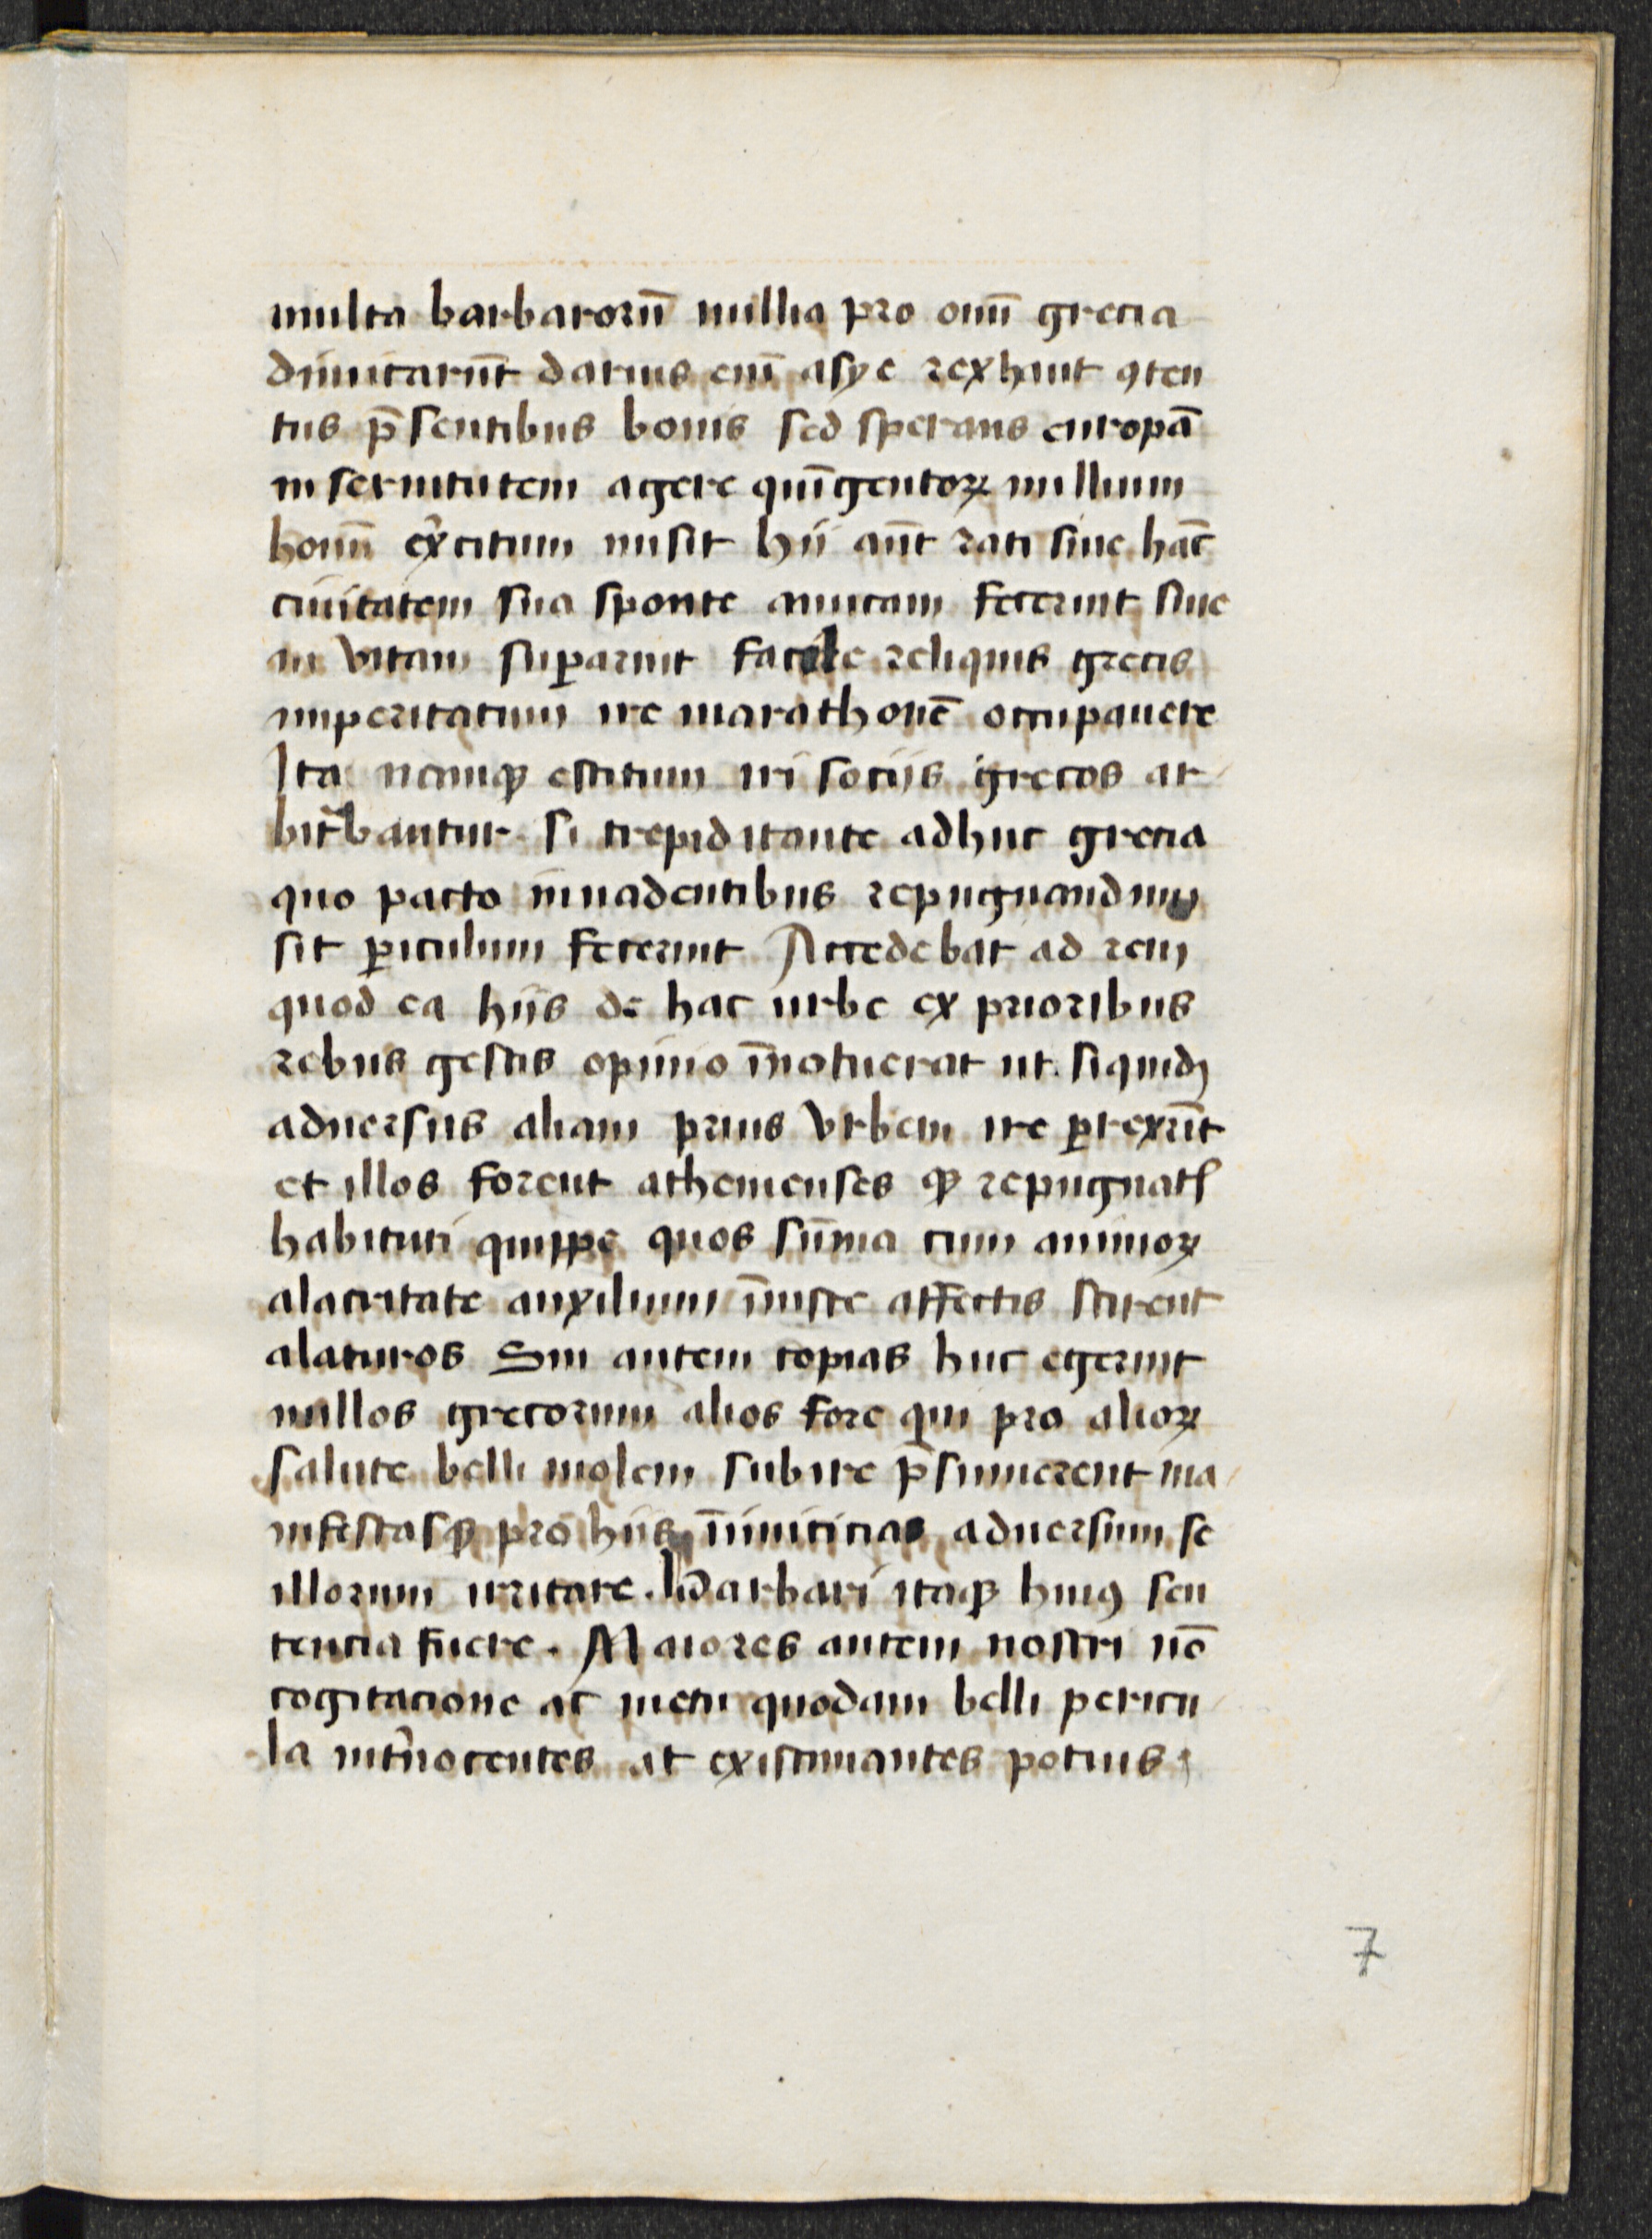 multa barbaroru̅ millia pro om̅i grecia
dimitaru̅t darius eni̅ asye rex haut ꝯten
tus p̅sentibus bonis sed sperans europa̅
in seruitutem agere qui̅gentoꝝ millium
homi̅ ex̾citum misit hij au̅t rati siue ha̅c
ciuitatem sua sponte amicam fecerint siue
in vitam suꝑarint facile reliquis grecis
imperitatum ire marathone̅ occupauere
Ita nemꝙ estitum iri socijs grecos ar
bitᷓbantur si trepiditante adhuc grecia
quo pacto inuadentibus repugnandum
sit ꝑiculum fecerint Accedebat ad rem
quod ea hijs de hac urbe ex prioribus
rebus gestis opinio i̅notuerat ut siquidꝫ
aduersus aliam prius vrbem ire ꝑrexri̅t
et illos forent athenienses ꝙ repugnatꝭ
habituti quippe quos su̅ma cum animoꝝ
alacritate auxilium i̅iuste affectis scirent
alaturos Sin autem copias huc egerint
nullos grecorum alios fore qui pro alioꝝ
salute belli molem subire p̅sumerent ma
nifestasꝙ pro hijs i̅imicicias aduersum se
illorum irritare. Barbari itaꝙ huiꝰ sen
tencia fuere. Maiores autem nostri no̅
cogitacione ac metu quodam belli pericu
la int̾nocentes at existimantes potius
7